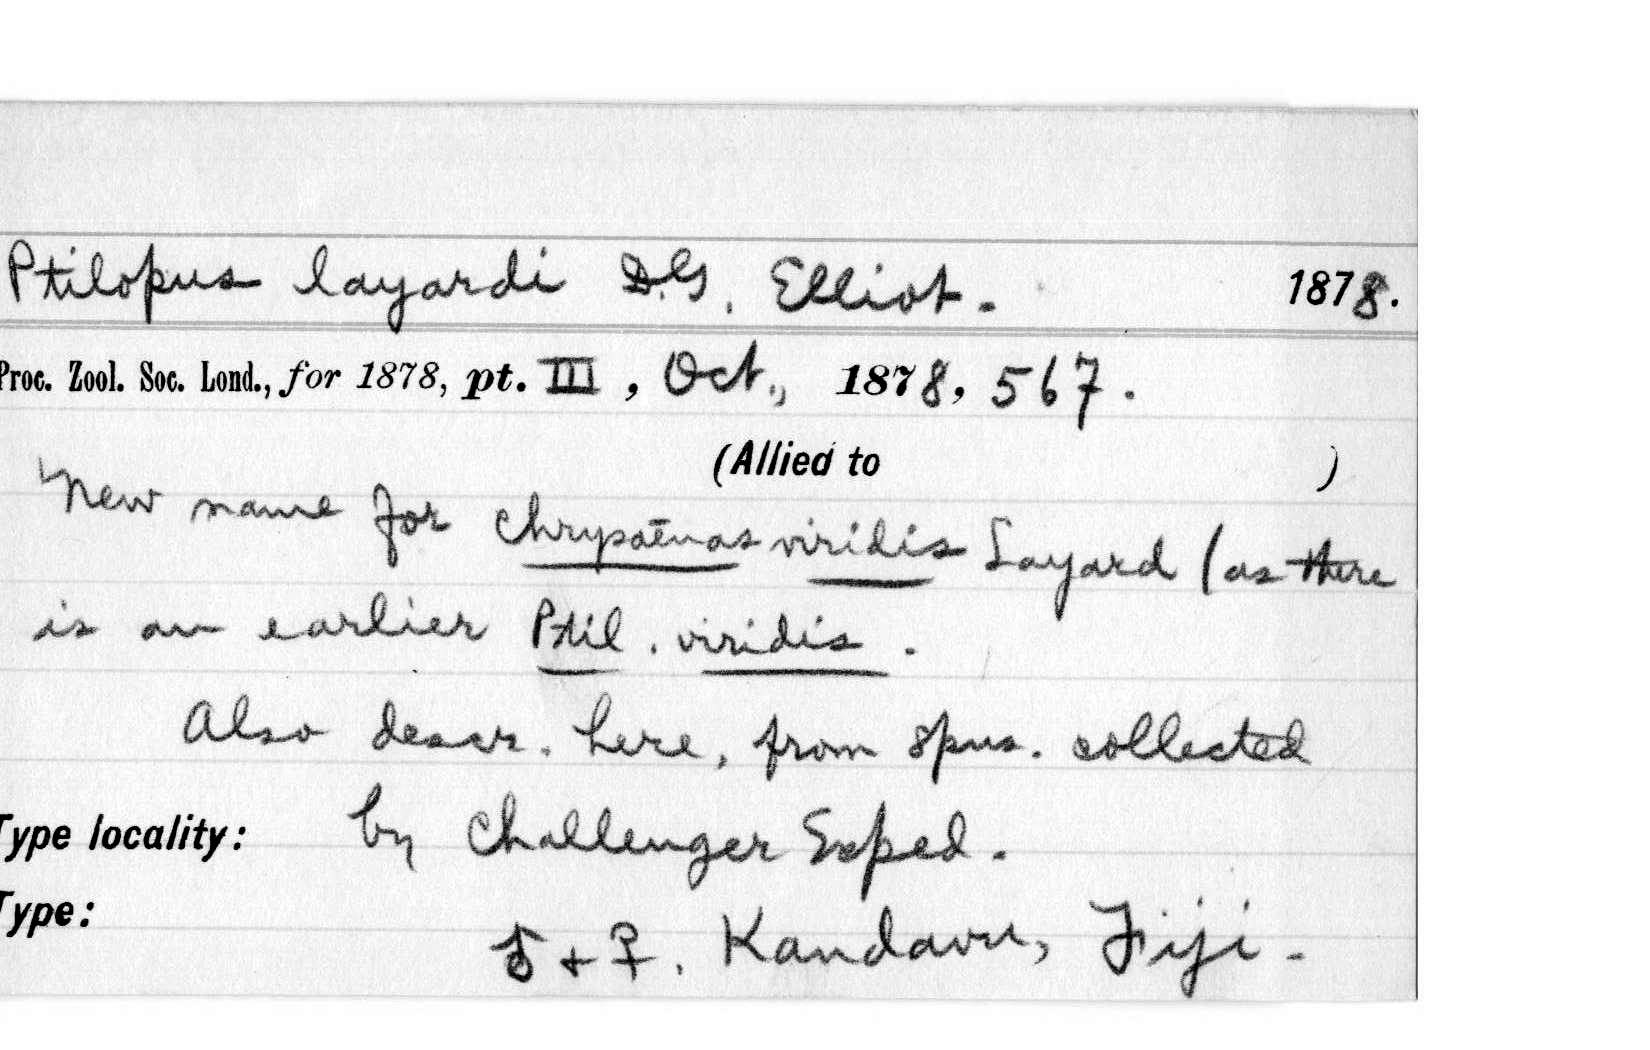 Ptilopus layardi D.G. Elliot. 1878.
Proc. Zool. Soc. Lond., for 1878, pt. III, Oct., 1878, 567.
(Allied to )
New name for Chrysoenas viridis Layard (as there
is an earlier Ptil. viridis.
Also descr. here, from spns. collected
Type locality: by Challenger Exped.
Type:
♂ + ♀. Kandavu, Fiji.